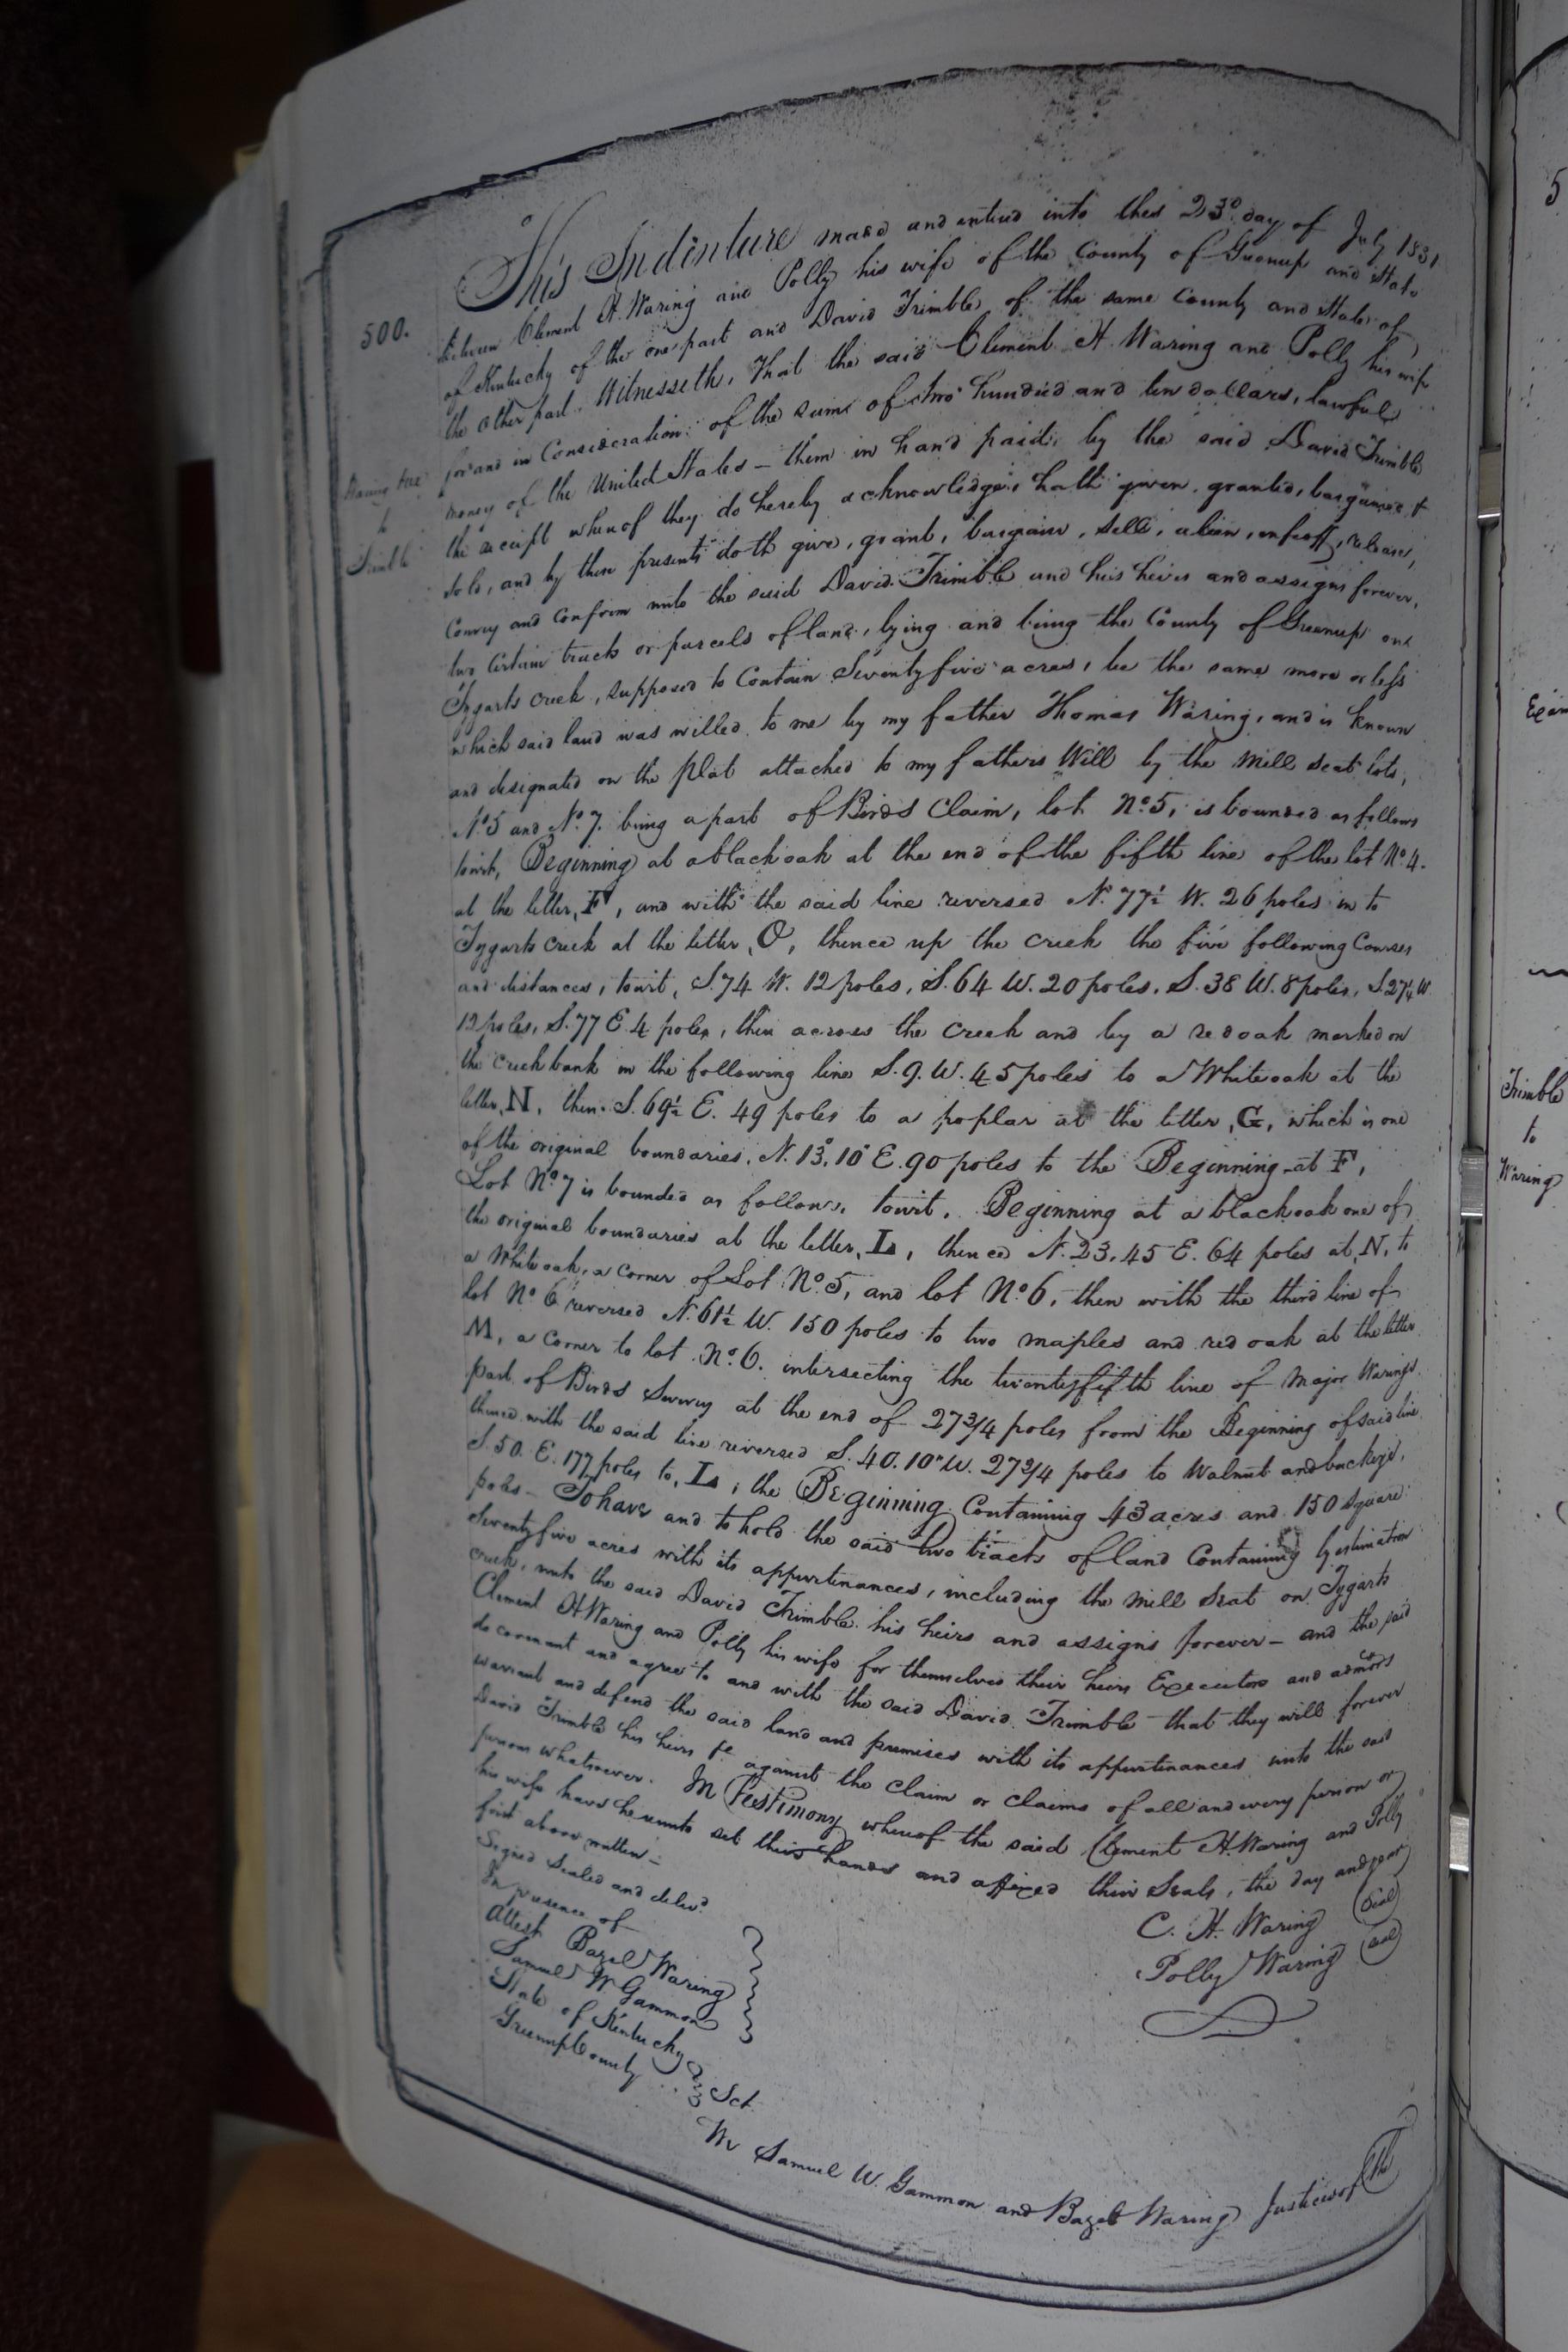 500.
Waring &c
to
Trimble
This Indenture made and entered into this 23d. day of July 1831
between Clement H. Waring and Polly his wife of the County of Greenup and State
of Kentucky of the one part and David Trimble of the same County and State of
the other part. Witnesseth, That the said Clement H. Waring and Polly his wife
for and in Consideration of the sum of two hundred and ten dollars, lawful
money of the United States – them in hand paid, by the said David Trimble
the receipt whereof they do hereby acknowledge, hath given, granted, bargained &
sold, and by these presents doth give, grant, bargain, sell, alien, enfeoff, release,
Convey and confirm unto the said David Trimble and his heirs and assigns forever,
two certain tracts or parcels of land, lying and being the County of Greenup on
Tygarts creek, supposed to Contain Seventy five acres, be the same more or less
which said land was willed to me by my father Thomas Waring, and is known
and designated on the plat attached to my fathers Will by the Mill seat lots,
No. 5 and No. 7. being a part of Birds Claim, lot No. 5, is bounded as follows
towit, Beginning at a black oak at the end of the fifth line of the lot No. 4.
at the letter, F, and with the said line reversed N. 77½ W. 26 poles in to
Tygarts creek at the letter, O, thence up the creek the five following Courses
and distances, towit, S. 74 W. 12 poles, S. 64 W. 20 poles, S. 38 W. 8 poles, S. 27¼ W
12 poles, S. 77 E. 4 poles, then across the creek and by a red oak marked on
the creek bank in the following line S. 9. W. 45 poles to a White oak at the
letter, N, then S. 69½ E. 49 poles to a poplar at the letter, G, which is one
of the original boundaries, N. 13°. 10' E. 90 poles to the Beginning at F,
Lot No. 7 is bounded as follows, towit, Beginning at a black oak one of
the original boundaries at the letter, L, thence N. 23. 45 E. 64 poles at, N, to
a White oak, a corner of Lot No. 5, and lot No. 6, then with the third line of
lot No 6 reversed N. 61½ W. 150 poles to two maples and red oak at the letter
M, a corner to lot No. 6. intersecting the twenty fifth line of Major Warings
part of Birds Survey at the end of 27 3/4 poles from the Beginning of said line
thence with the said line reversed S. 40. 10" W. 27 3/4 poles to Walnut and buckeye,
S. 50. E. 177 poles to, L, the Beginning Containing 43 acres and 150 square
poles – To have and to hold the said two tracts of land Containing by estimation
Seventy five acres with its appurtinances, including the Mill Seat on Tygarts
creek, unto the said David Trimble his heirs and assigns forever – and the said
Clement H Waring and Polly his wife for themselves their heirs Executors and admors
do covenant and agree to and with the said David Trimble that they will forever
warrant and defend the said land and premises with its appurtinances unto the said
David Trimble his heirs &c against the claim or claims of all and every person or
persons whatsoever. In Testimony whereof the said Clement H Waring and Polly
his wife have hereunto set their hands and affixed their Seals, the day and year
first above written –
Signed Sealed and delivd.
In presence of
Attest Bazel Waring
Samuel W Gammon
C. H. Waring (Seal)
Polly Waring (Seal)
State of Kentucky
Greenup County Sct.
We Samuel W. Gammon and Bazel Waring Justices of the
5
Trimble
to
Waring